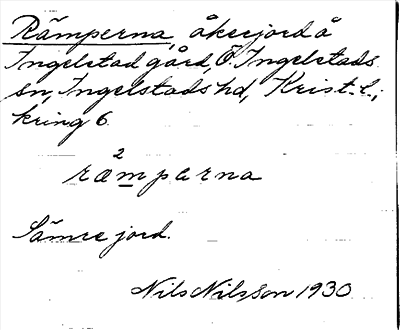 Rämperna, åkerjord å
Ingelstad gård, Ö. Ingelstads
sn, Ingelstads hd, Krist. l.;
kring 6.
2
ræmperna
Sämre jord.
Nils Nilsson 1930